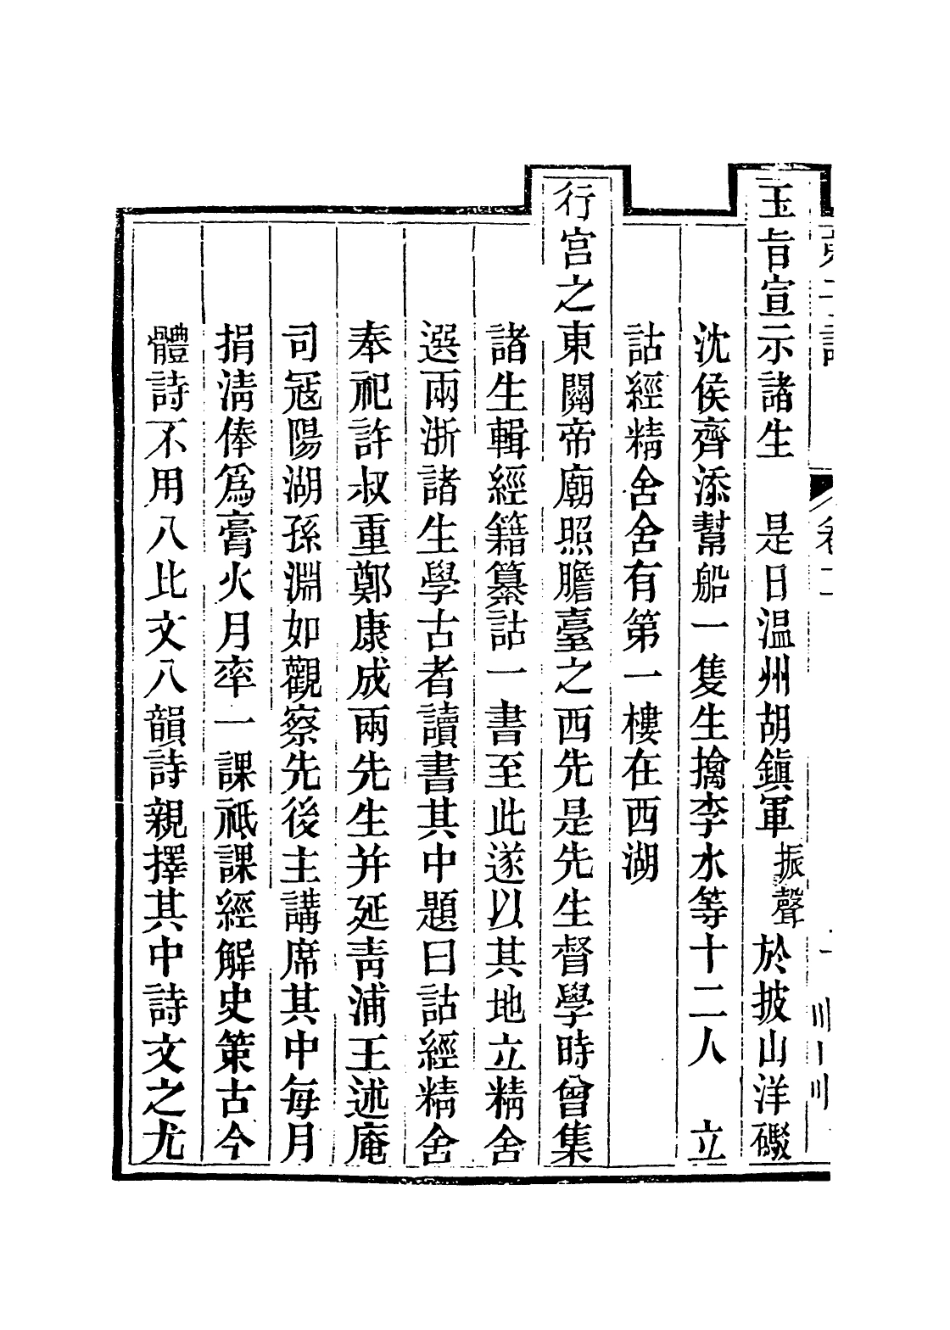 玉旨宣示諸生　是日温州胡鎮軍振聲於披山洋磤
沈侯齊添幫船一隻生擒李水等十二人　立
詁經精舍舍有第一樓在西湖
行宮之東關帝廟照膽臺之西先是先生督學時曾集
諸生輯經籍纂詁一書至此遂以其地立精舍
選兩浙諸生學古者讀書其中題曰詁經精舍
奉祀許叔重鄭康成兩先生并延青浦王述庵
司冦陽湖孫淵如觀察先後主講席其中每月
捐淸俸爲膏火月率一課祗課經解史策古今
體詩不用八比文八韻詩親擇其中詩文之尤